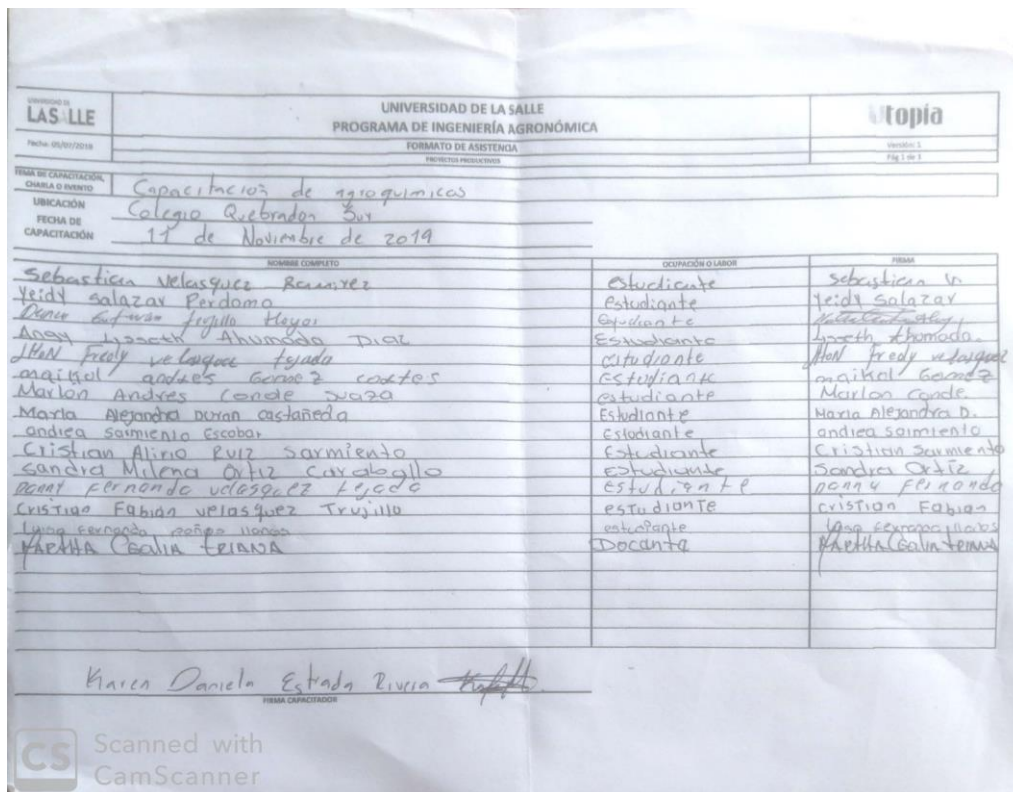 UNIVERSIDAD DE
LASALLE
UNIVERSIDAD DE LA SALLE
PROGRAMA DE INGENIERÍA AGRONÓMICA
Utopía
Fecha: 05/07/2019
FORMATO DE ASISTENCIA
Versión: 1
PROYECTOS PRODUCTIVOS
Pág 1 de 3
TEMA DE CAPACITACIÓN, CHARLA O EVENTO Capacitación de agroquimicos
UBICACIÓN Colegio Quebradon Sur
FECHA DE CAPACITACIÓN 11 de Noviembre de 2019
NOMBRE COMPLETO OCUPACIÓN O LABOR FIRMA
Sebastian Velasquez Ramirez estudiante Sebastian V.
Yeidy Salazar Perdomo Estudiante Yeidy Salazar
trujillo Hoyos Estudiante
Angy Lisseth Ahumada Diaz Estudiante Lisseth Ahumada.
JHoN Fredy velasquez tejada estudiante JHoN fredy velasquez
maikol andres Gomez cortes Estudiante maikol Gomez
Marlon Andres Conde Suaza estudiante Marlon Conde.
Maria Alejandra Duran Castañeda Estudiante Maria Alejandra D.
andrea sarmiento Escobar Estudiante andrea sarmiento
Cristian Alirio Ruiz Sarmiento Estudiante Cristian Sarmiento
Sandra Milena Ortiz Caraballo Estudiante Sandra Ortiz
Danny Fernando velasquez tejada estudiante Danny Fernando
Cristian Fabian velasquez Trujillo estudiante cristian Fabian
fernando llanos estudiante
MARTHA CECALIA TRIANA Docanta MARTHA Cecalia TRIANA
Karen Daniela Estrada Rivera
FIRMA CAPACITADOR
CS Scanned with
CamScanner